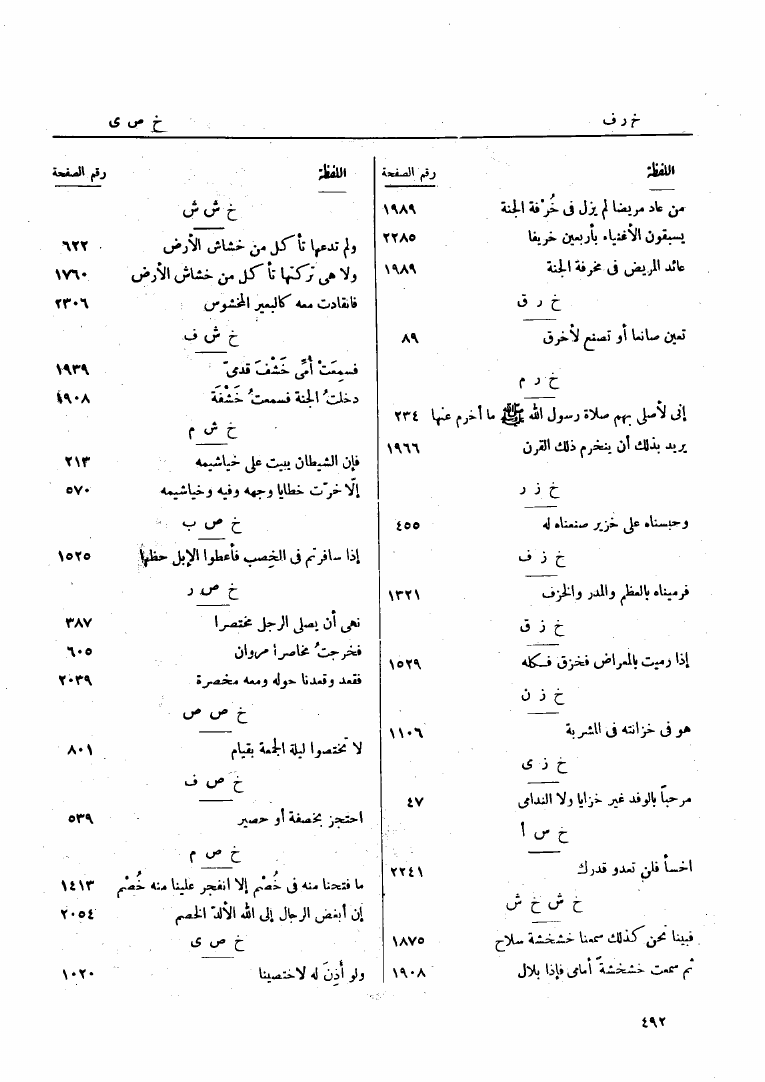 خ ر ف
خ ص ى
اللفظة رقم الصفحة
من عاد مريضا لم يزل فى خُرْفة الجنة ١٩٨٩
يسبقون الأغنياء بأربعين خريفا ٢٢٨٥
عائد المريض فى مخرفة الجنة ١٩٨٩
خ ر ق
تعين صانعا أو تصنع لأخرق ٨٩
خ ر م
إنى لأصلى بهم صلاة رسول الله ﷺ ما أخرم عنها ٢٣٤
يريد بذلك أن ينخرم ذلك القرن ١٩٦٦
خ ز ر
وحبسناه على خزير صنعناه له ٤٥٥
خ ز ف
فرميناه بالعظم والمدر والخزف ١٣٢١
خ ز ق
إذا رميت بالمعراض فخزق فكله ١٥٢٩
خ ز ن
هو فى خزانته فى المشربة ١١٠٦
خ ز ى
مرحباً بالوفد غير خزايا ولا الندامى ٤٧
خ س أ
اخسأ فلن تعدو قدرك ٢٢٤١
خ ش خ ش
فبينا نحن كذلك سمعنا خشخشة سلاح ١٨٧٥
ثم سمعت خشخشةً أمامى فإذا بلال ١٩٠٨
اللفظة رقم الصفحة
خ ش ش
ولم تدعها تأكل من خشاش الأرض ٦٢٢
ولا هى تركتها تأكل من خشاش الأرض ١٧٦٠
فانقادت معه كالبعير المخشوس ٢٣٠٦
خ ش ف
فسمِعَتْ أمِّى خَشْفَ قدمىّ ١٩٣٩
دخلتُ الجنة فسمعتُ خَشْفَةً ١٩٠٨
خ ش م
فإن الشيطان يبيت على خياشيمه ٢١٣
إلّا خرّت خطايا وجهه وفيه وخياشيمه ٥٧٠
خ ص ب
إذا سافرتم فى الخِصب فأعطوا الإبل حظها ١٥٢٥
خ ص ر
نهى أن يصلى الرجل مختصرا ٣٨٧
فخرجتُ مخاصراً مروان ٦٠٥
فقعد وقعدنا حوله ومعه مخصرة ٢٠٣٩
خ ص ص
لا تختصوا ليلة الجمعة بقيام ٨٠١
خ ص ف
احتجز بخصفة أو حصير ٥٣٩
خ ص م
ما فتحنا منه فى خُصْم إلا انفجر علينا منه خُصْم ١٤١٣
إن أبغض الرجال إلى الله الألدّ الخصم ٢٠٥٤
خ ص ى
ولو أَذِنَ له لاختصينا ١٠٢٠
٤٩٢